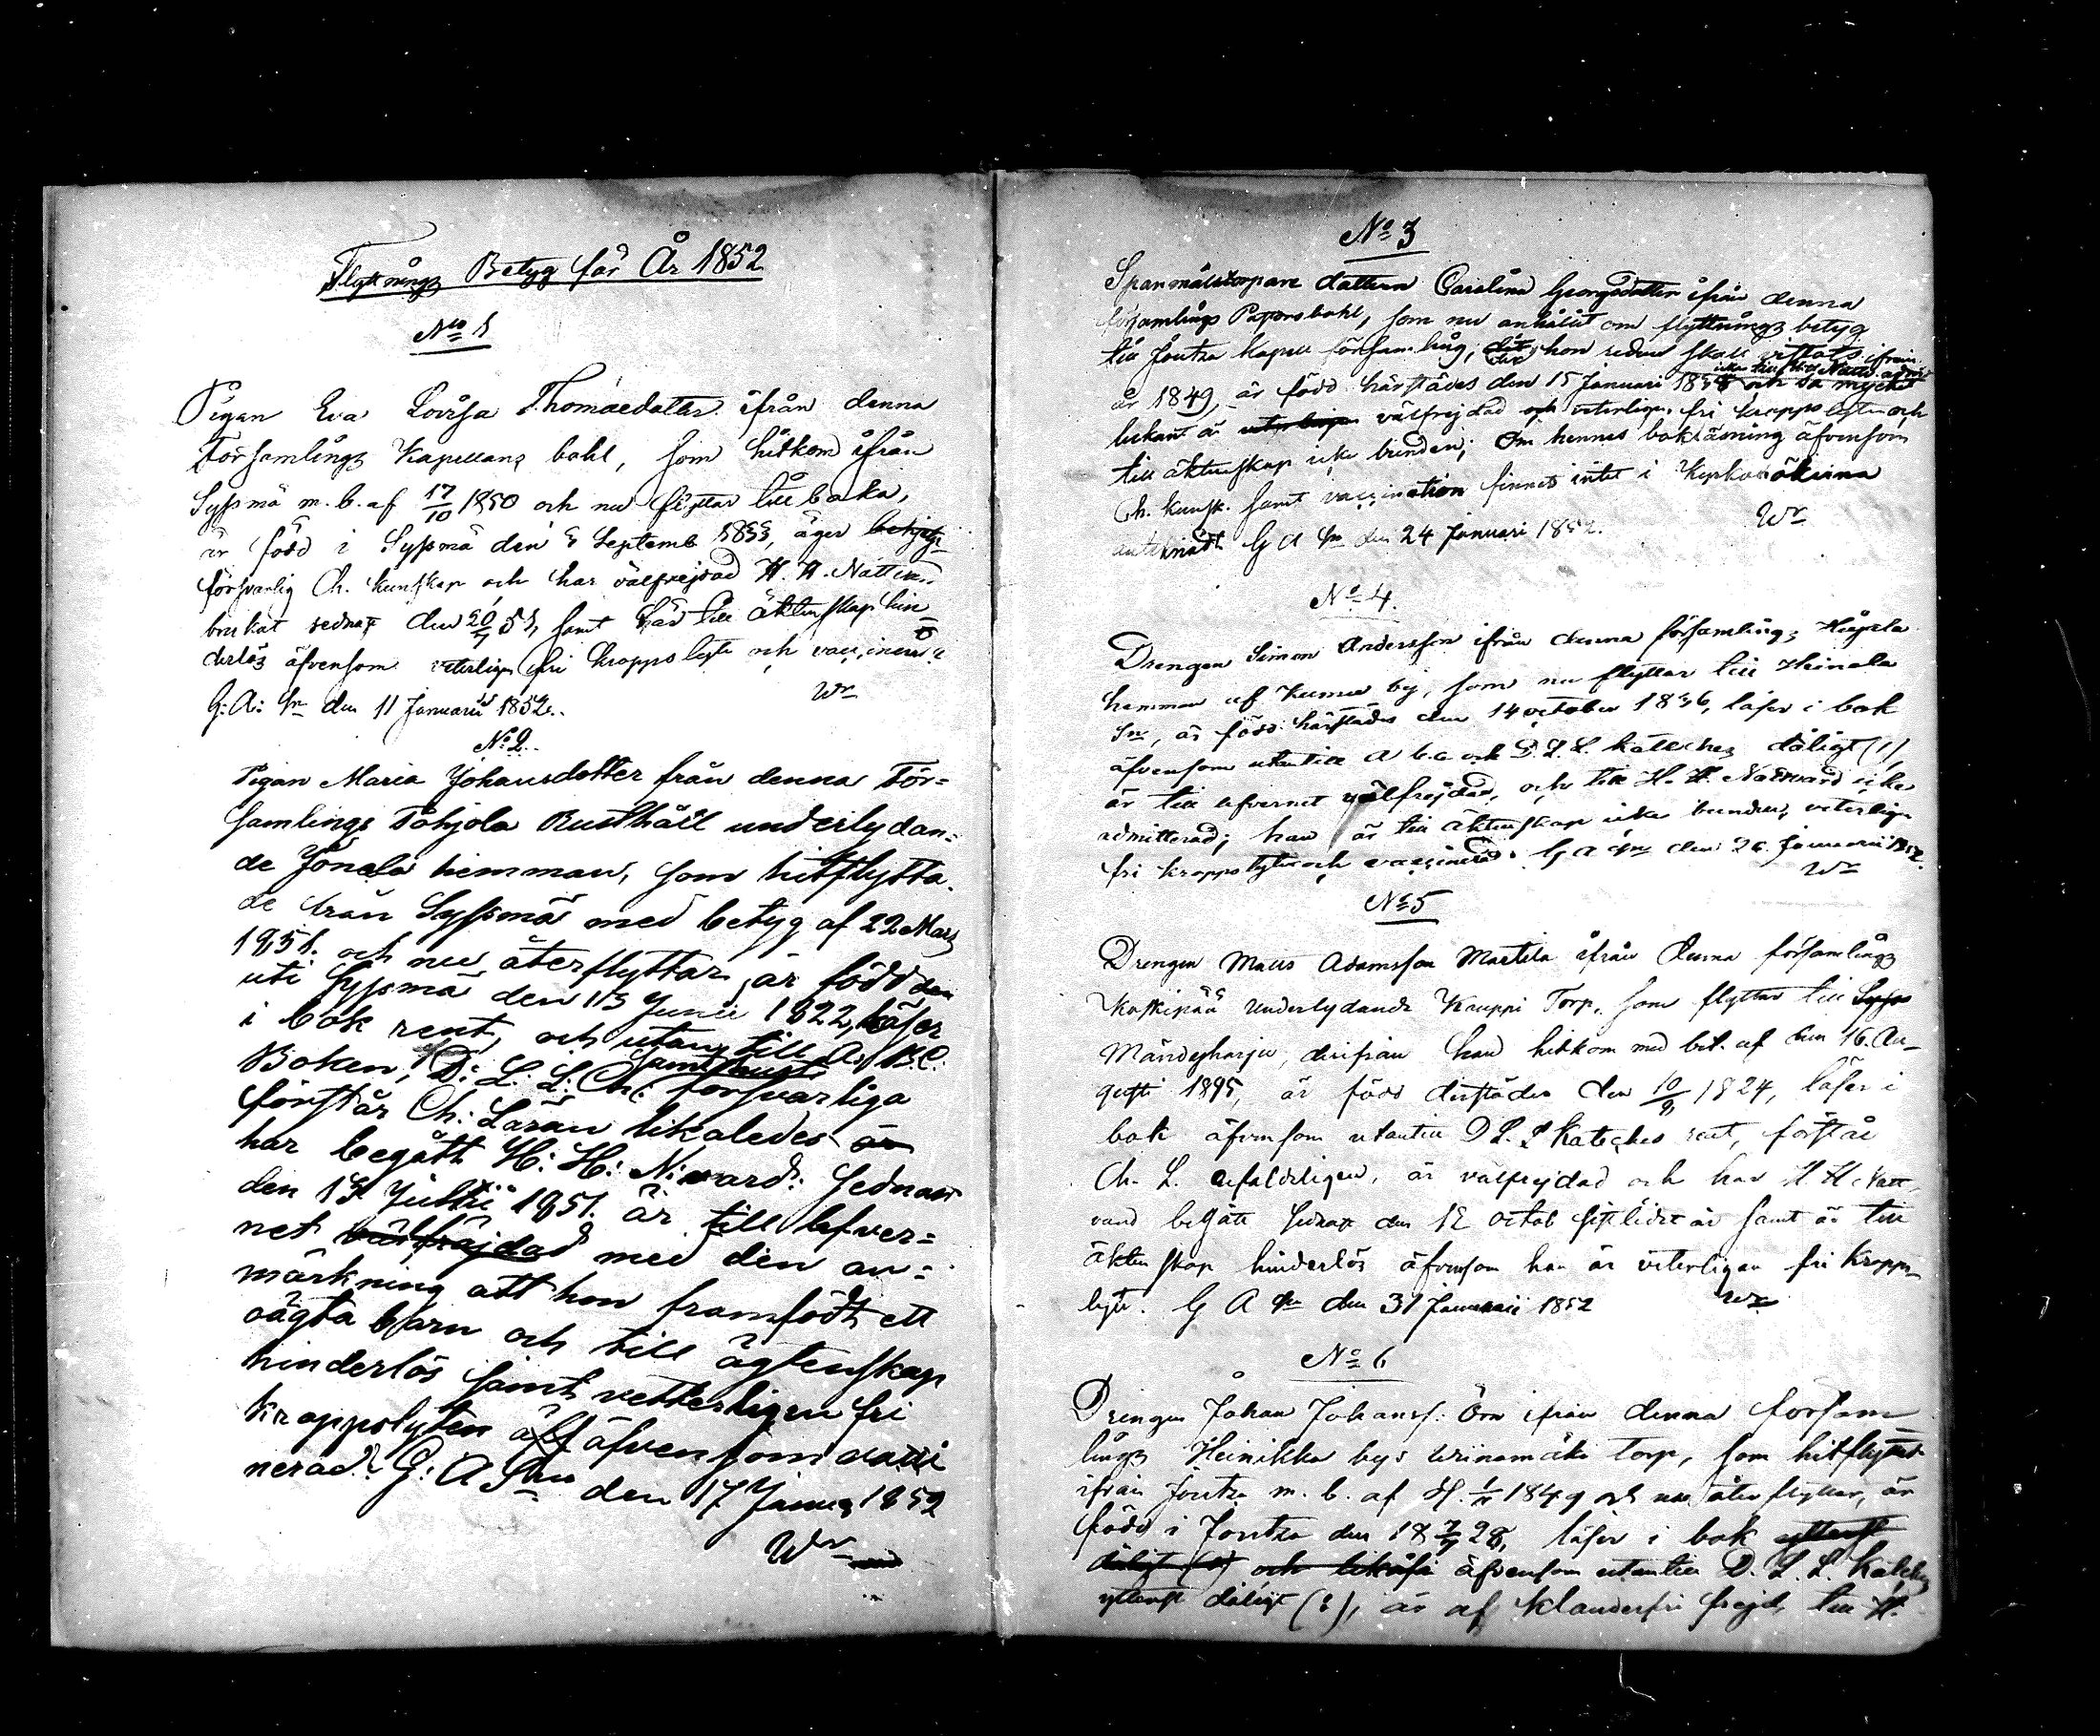 Flyttnings Betyg för År 1852
No 1
Pigan Eva Lovisa Thomædotter ifrån denna
Församlings Kapellans bohl, som hitkom ifrån
Syssmä m. b. af 17/10 1850 och nu flyttar tillbaka,
är född i Syssmä den Septemb 1833, äger
försvarlig Ch. kunskap och har välfrejdad H. H. Nattv.
brukat sednast den 20/7 51, samt är till äktenskap hin
derlös äfvensom veterligen fri kroppslyte och vaccinerad
G: A: Sn den 11 Januarii 1852. Wn
No 2.
Pigan Maria Johansdotter från denna För=
samlings Pohjola Rusthåll underlydan=
de Jonela hemman, som hitflytta-
de från Syssmä med betyg af 22 Mars
1851. och nu återflyttar, är född den
uti Syssmä den 13 Junii 1822, läser
i bok rent, och utan till A. B. C.
Boken, D: L. L: Ch: samt försvarliga
förstår Ch: Läran likaledes är
har begått H: H: N:vard: sednast
den 13 Julii 1851. är till lefver=
net välfräjdad med den an=
märkning att hon framfödt ett
oägta barn och till ägtenskap
hinderlös samt vetterligen fri
kroppslyten äf äfvensom vacci
nerad. G: A Sn den 17 Janua 1852
Wn
No 3
Spanmålstorpare dottern Carolina Georgsdotter ifrån denna
församlings Pastorsbohl, som nu anhållit om flyttnings betyg
till Joutza Kapell församling, dit hon redan skall
ifrån
år 1849, är född härstädes den 15 Januari 1838 och så mycket
bekant är välfrejdad och veterligen fri kroppslyten och
till äktenskap icke bunden; Om hennes bokläsning äfvensom
Ch. kunsk. samt vaccination finnes intet i Kyrkoböckerna
antecknadt G A Sn den 24 Januari 1852. Wn
No 4.
Drengen Simon Andersson ifrån denna församlings
hemman af Kumu by, som nu flyttar till
Sn, är född härstädes den 14 october 1836, läser i bok
äfvensom utantill a b.c och D. L. L. kateches dåligt (1),
är till lefvernet välfrejdad, och till H. H. Nattvard icke
admitterad; han är till äktenskap icke bunden, veterligen
fri kroppslyte och vaccinerad. G A Sn den 26. Januarii 1852.
Wn
No 5
Drengen Matts Adamsson Martila ifrån denna församlings
Koskipää underlydande Kauppi Torp, som flyttar till Syss
Mändyharju, derifrån han hitkom med bet. af den 16. Au-
gusti 1845, är född derstädes den 10/9 1824, läser i
bok äfvensom utantill D L. L Kateches rent, förstår
Ch. L. enfaldeligen, är välfrejdad och har H H Natt-
vard begått sednast den 12 octob sistlidet år samt är till
äktenskap hinderlös äfvensom han är veterligen fri Kropps-
lyte. G A Sn den 31 Januarii 1852 Wn
No 6
Drengen Johan Johanss: Örn ifrån denna försam
lings Heinikka bys torp, som hitflyttat
ifrån Joutza m. b. af 1849 och nu återflyttar, är
född i Joutza den 18 28, läser i bok ytterst
dåligt (2) och likaså äfvensom utantill D. L. L. Katek
ytterst dåligt (2), är af klanderfri frejd, till H.